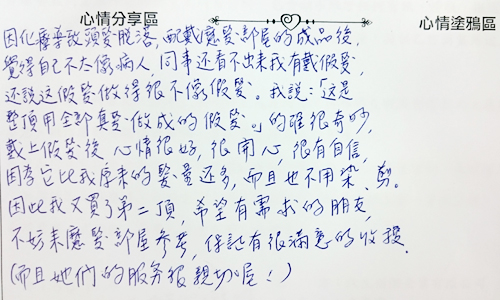 心情分享區 心情塗鴉區
因化療導致頭髮脫落，配戴應髮部屋的成品後，
覺得自己不太像病人，同事還看不出來我有戴假髮，
還說這假髮做得很不像假髮。我說：「這是
整頂用全部真髮做成的假髮。」的確很奇妙，
戴上假髮後心情很好，很開心，很有自信，
因為它比我原來的髮量還多，而且也不用染、剪。
因此我又買了第二頂，希望有需求的朋友，
不妨來應髮部屋參考，保証有很滿意的收穫。
（而且她們的服務很親切喔！）